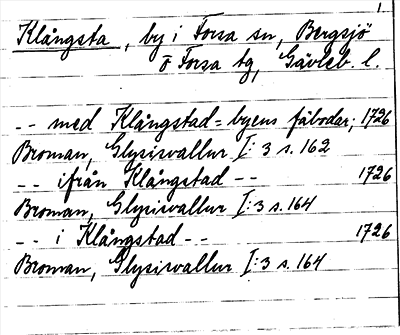 1
Klångsta, by i Forsa sn, Bergsjö
o Forsa tg, Gävleb. l.
-- med Klångstad=byens fäbodar, 1726
Broman, Glysisvallur I:3 s. 162
-- ifrån Klångstad -- 1726
Broman, Glysisvallur I:3 s. 164
-- i Klångstad -- 1726
Broman, Glysisvallur I:3 s. 164